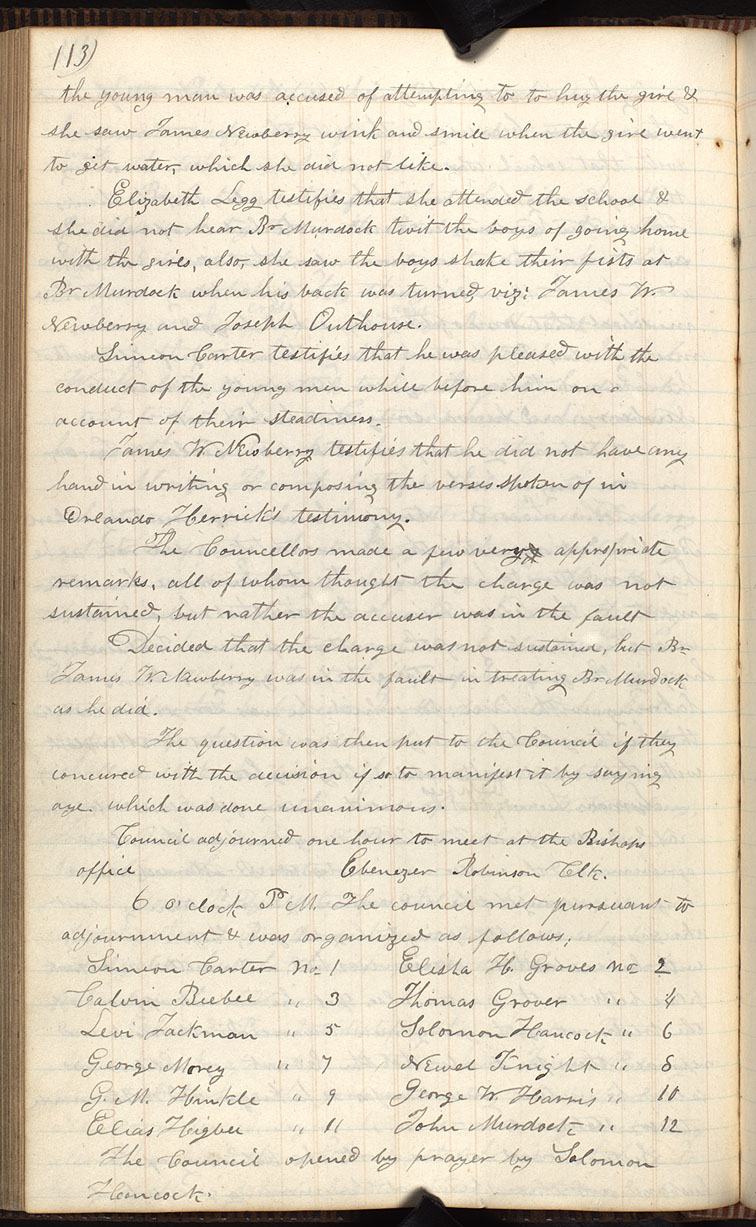 113)
the young man was accused of attempting to to hug the girl &
she saw James Newberry wink and smile when the girl went
to get water, which she did not like.
Elizabeth Legg testifies that she attended the school &
she did not hear Br Murdock twit the boys of going home
with the girls, also, she saw the boys shake their fists at
Br Murdock when his back was turned, viz; James W.
Newberry and Joseph Outhouse.
Simeon Carter testifies that he was pleased with the
conduct of the young men while before him on
account of their steadiness.
James W Newberry testifies that he did not have any
hand in writing or composing the verses spoken of in
Orlando Herrick's testimony.
The Councellors made a few very appropriate
remarks, all of whom thought the charge was not
sustained, but rather the accuser was in the fault
Decided that the charge was not sustained, but Br
James W. Newberry was in the fault in treating Br Murdock
as he did.
The question was then put to the Council if they
concured with the decision if so to manifest it by saying
aye. which was done unanimous.
Council adjourned one hour to meet at the Bishops
office Ebenezer Robinson Clk.
6 o'clock P. M. The council met pursuant to
adjournment & was organized as follows;
Simeon Carter No 1 Elisha H. Groves No 2
Calvin Beebee " 3 Thomas Grover " 4
Levi Jackman " 5 Solomon Hancock " 6
George Morey " 7 Newel Knight " 8
G. M. Hinkle " 9 George W. Harris " 10
Elias Higbee " 11 John Murdock " 12
The Council opened by prayer by Solomon
Hancock.